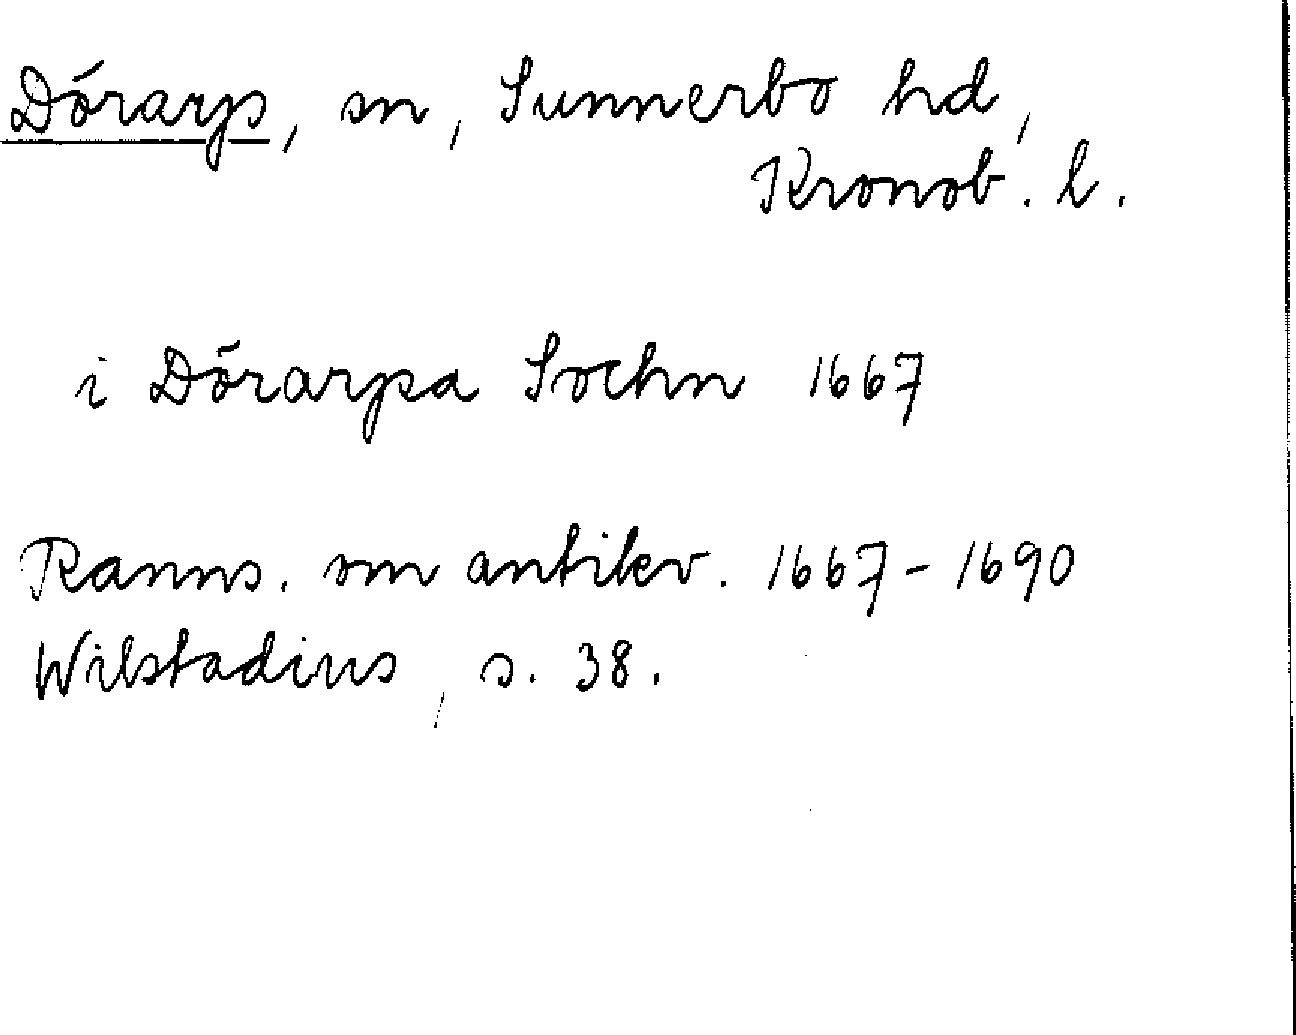 Dörarp, sn, Sunnerbo hd,
Kronob. l.
i Dörarpa Sochn 1667
Ranns. om antikv. 1667-1690
Wilstadius, s. 38.